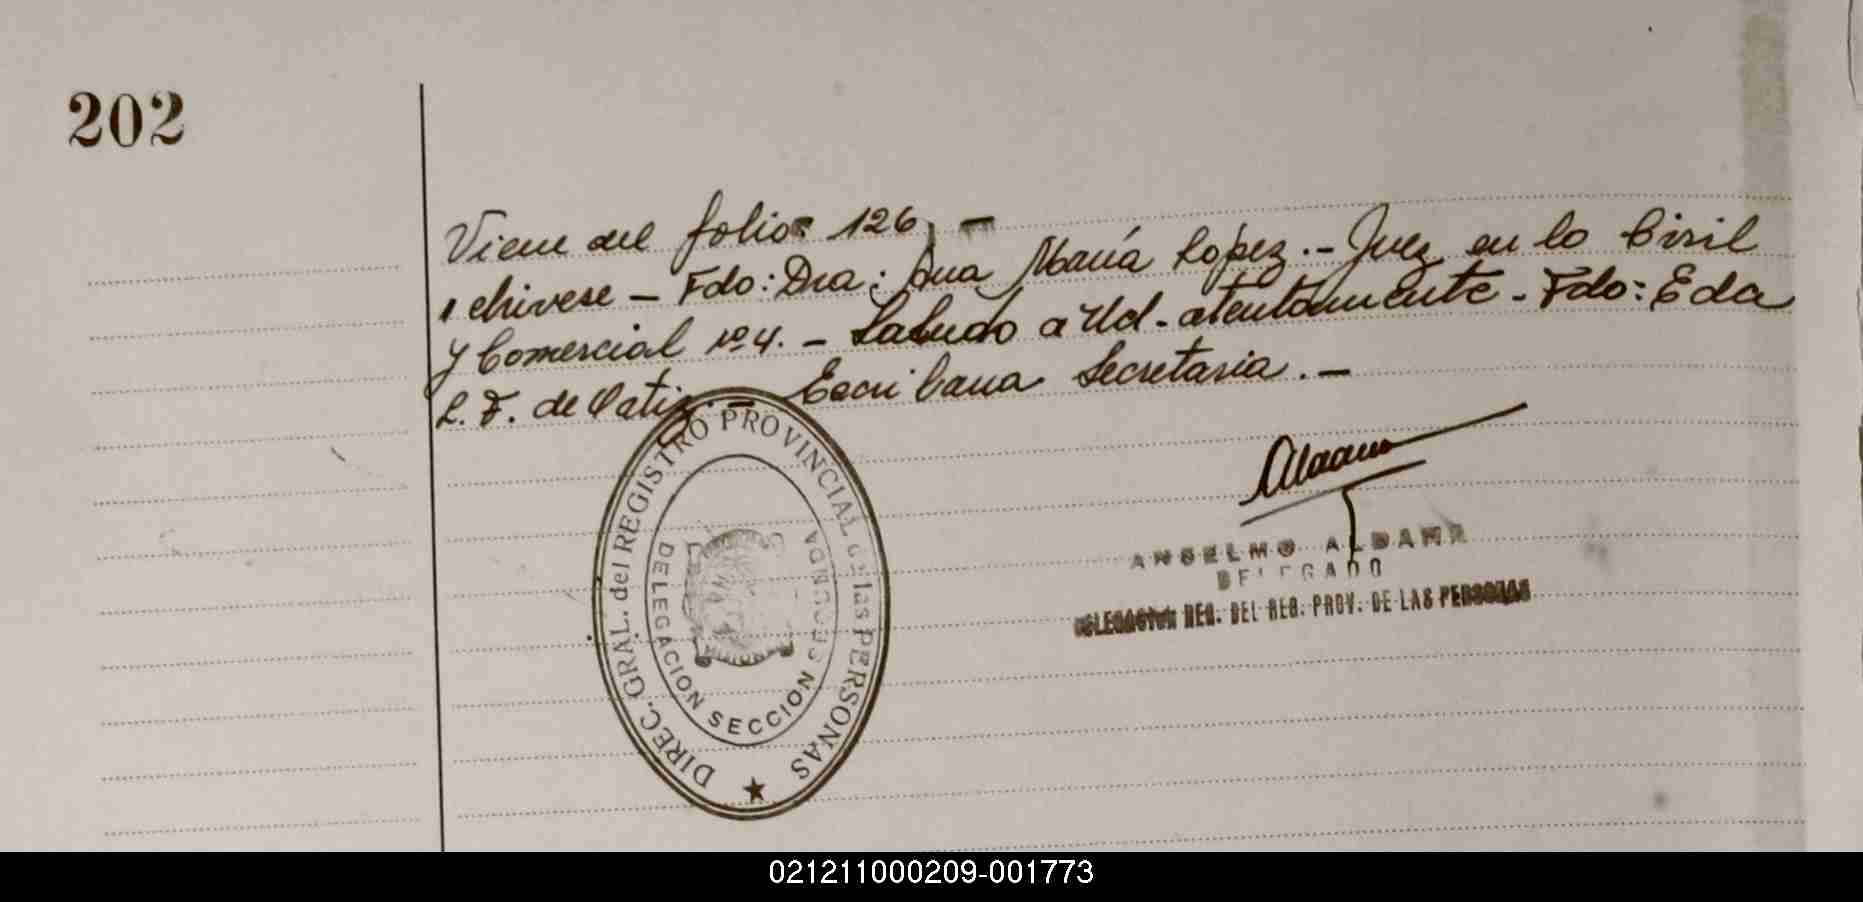 202
Viene del folio: 126, -
Archivese - Fdo: Dra: Ana María Lopez .- Juez en lo Civil
y Comercial nº 4. - Saludo a Ud. atentamente - Fdo: Eda
L. F. de Ortiz. - Escribana Secretaria . -
DIREC. GRAL. del REGISTRO PROVINCIAL de las PERSONAS
DELEGACION SECCION SEGUNDA
★
ANSELMO ALDAMA
DELEGADO
DELEGACION REG. DEL REG. PROV. DE LAS PERSONAS
021211000209-001773